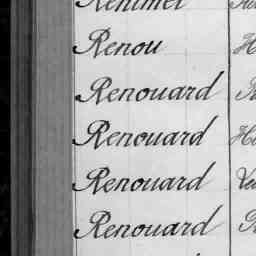 Renou H
Renouard
Renouard
Renouard
Renouard